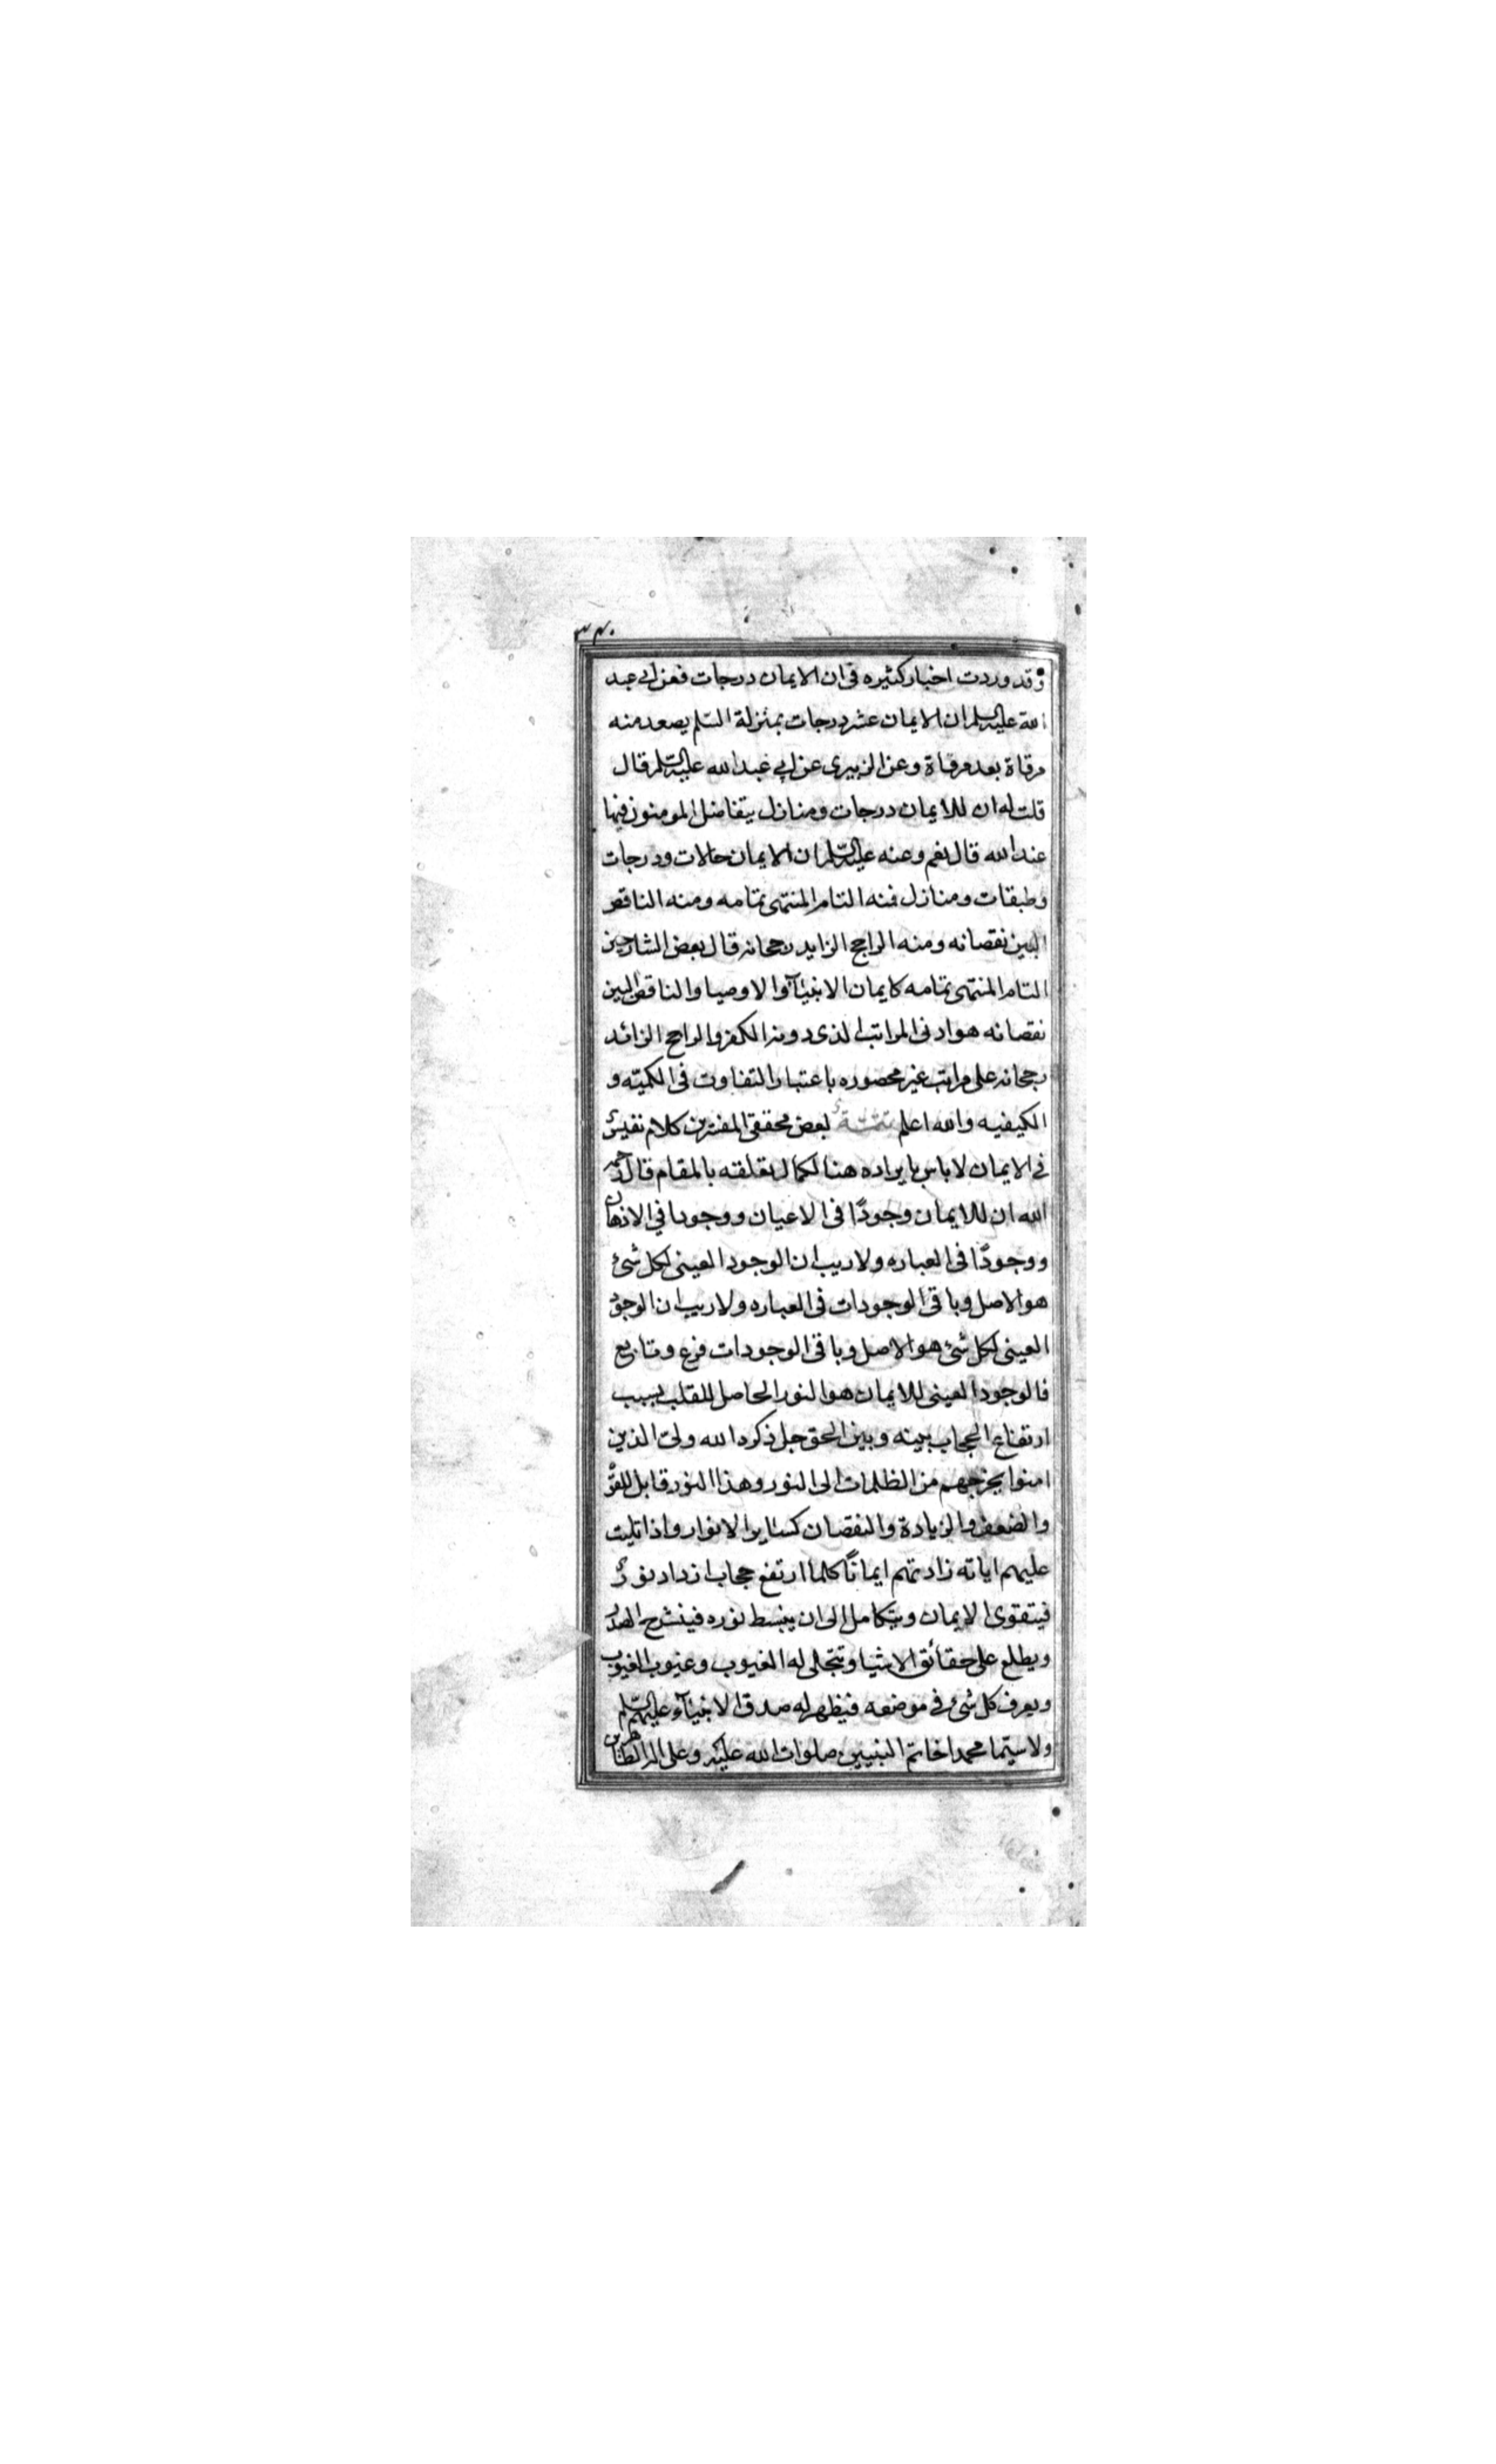 ٣٢٠
وقد وردت اخبار كثيره فى ان الايمان درجات فعن ابى عبد
الله عليه السلم ان الايمان عشر درجات بمنزلة السّلم يصعد منه
مرقاة بعد مرقاة وعن الزبيرى عن ابى عبد الله عليه السّلم قال
قلت له ان للايمان درجات ومنازل يتفاضل المومنون فيها
عند الله قال نعم وعنه عليه السّلم ان الايمان حالات ودرجات
وطبقات ومنازل فمنه التام المنتهى تمامه ومنه الناقص
البين نقصانه ومنه الراجح الزايد رجحانه قال بعض الشارحين
التام المنتهى تمامه كايمان الانبيآء والاوصيا والناقص البين
نقصانه هو ادنى المراتب الذى دونه الكفر والراجح الزائد
رجحانه على مراتب غير محصوره باعتبار التفاوت فى الكميّته و
الكيفيه والله اعلم تتمّة بعض محققى المفسّرين كلام نفيس
فى الايمان لا باس بايراده هنا لكمال تعلقته بالمقام قال رحمه
الله ان للايمان وجودًا فى الاعيان ووجودا في الاذهان
ووجودًا فى العباره ولا ريب ان الوجود العينى لكل شئ
هو الاصل وباقى الوجودات فى العباره ولا ريب ان الوجود
العينى لكل شئ هو الاصل وباقى الوجودات فرع وتابع
فالوجود العينى للايمان هو النور الحاصل للقلب بسبب
ارتفاع الحجاب بينه وبين الحق جل ذكره الله ولىّ الذين
امنوا يخرجهم من الظلمات الى النور وهذا النور قابل للقوّة
والضعف والزيادة والنقصان كساير الانوار واذا تليت
عليهم اياته زادتهم ايمانًا كلما ارتفع حجاب ازداد نورٌ
فيتقوى الايمان ويتكامل الى ان ينبسط نوره فينشرح الصدر
ويطلع على حقائق الاشيا وتتجلى له الغيوب وغيوب الغيوب
ويعرف كل شئ فى موضعه فيظهر له صدق الانبيآء عليهم السّلم
ولا سيّما محمدا خاتم النبيين صلوات الله عليه وعلى اله الطاهرين